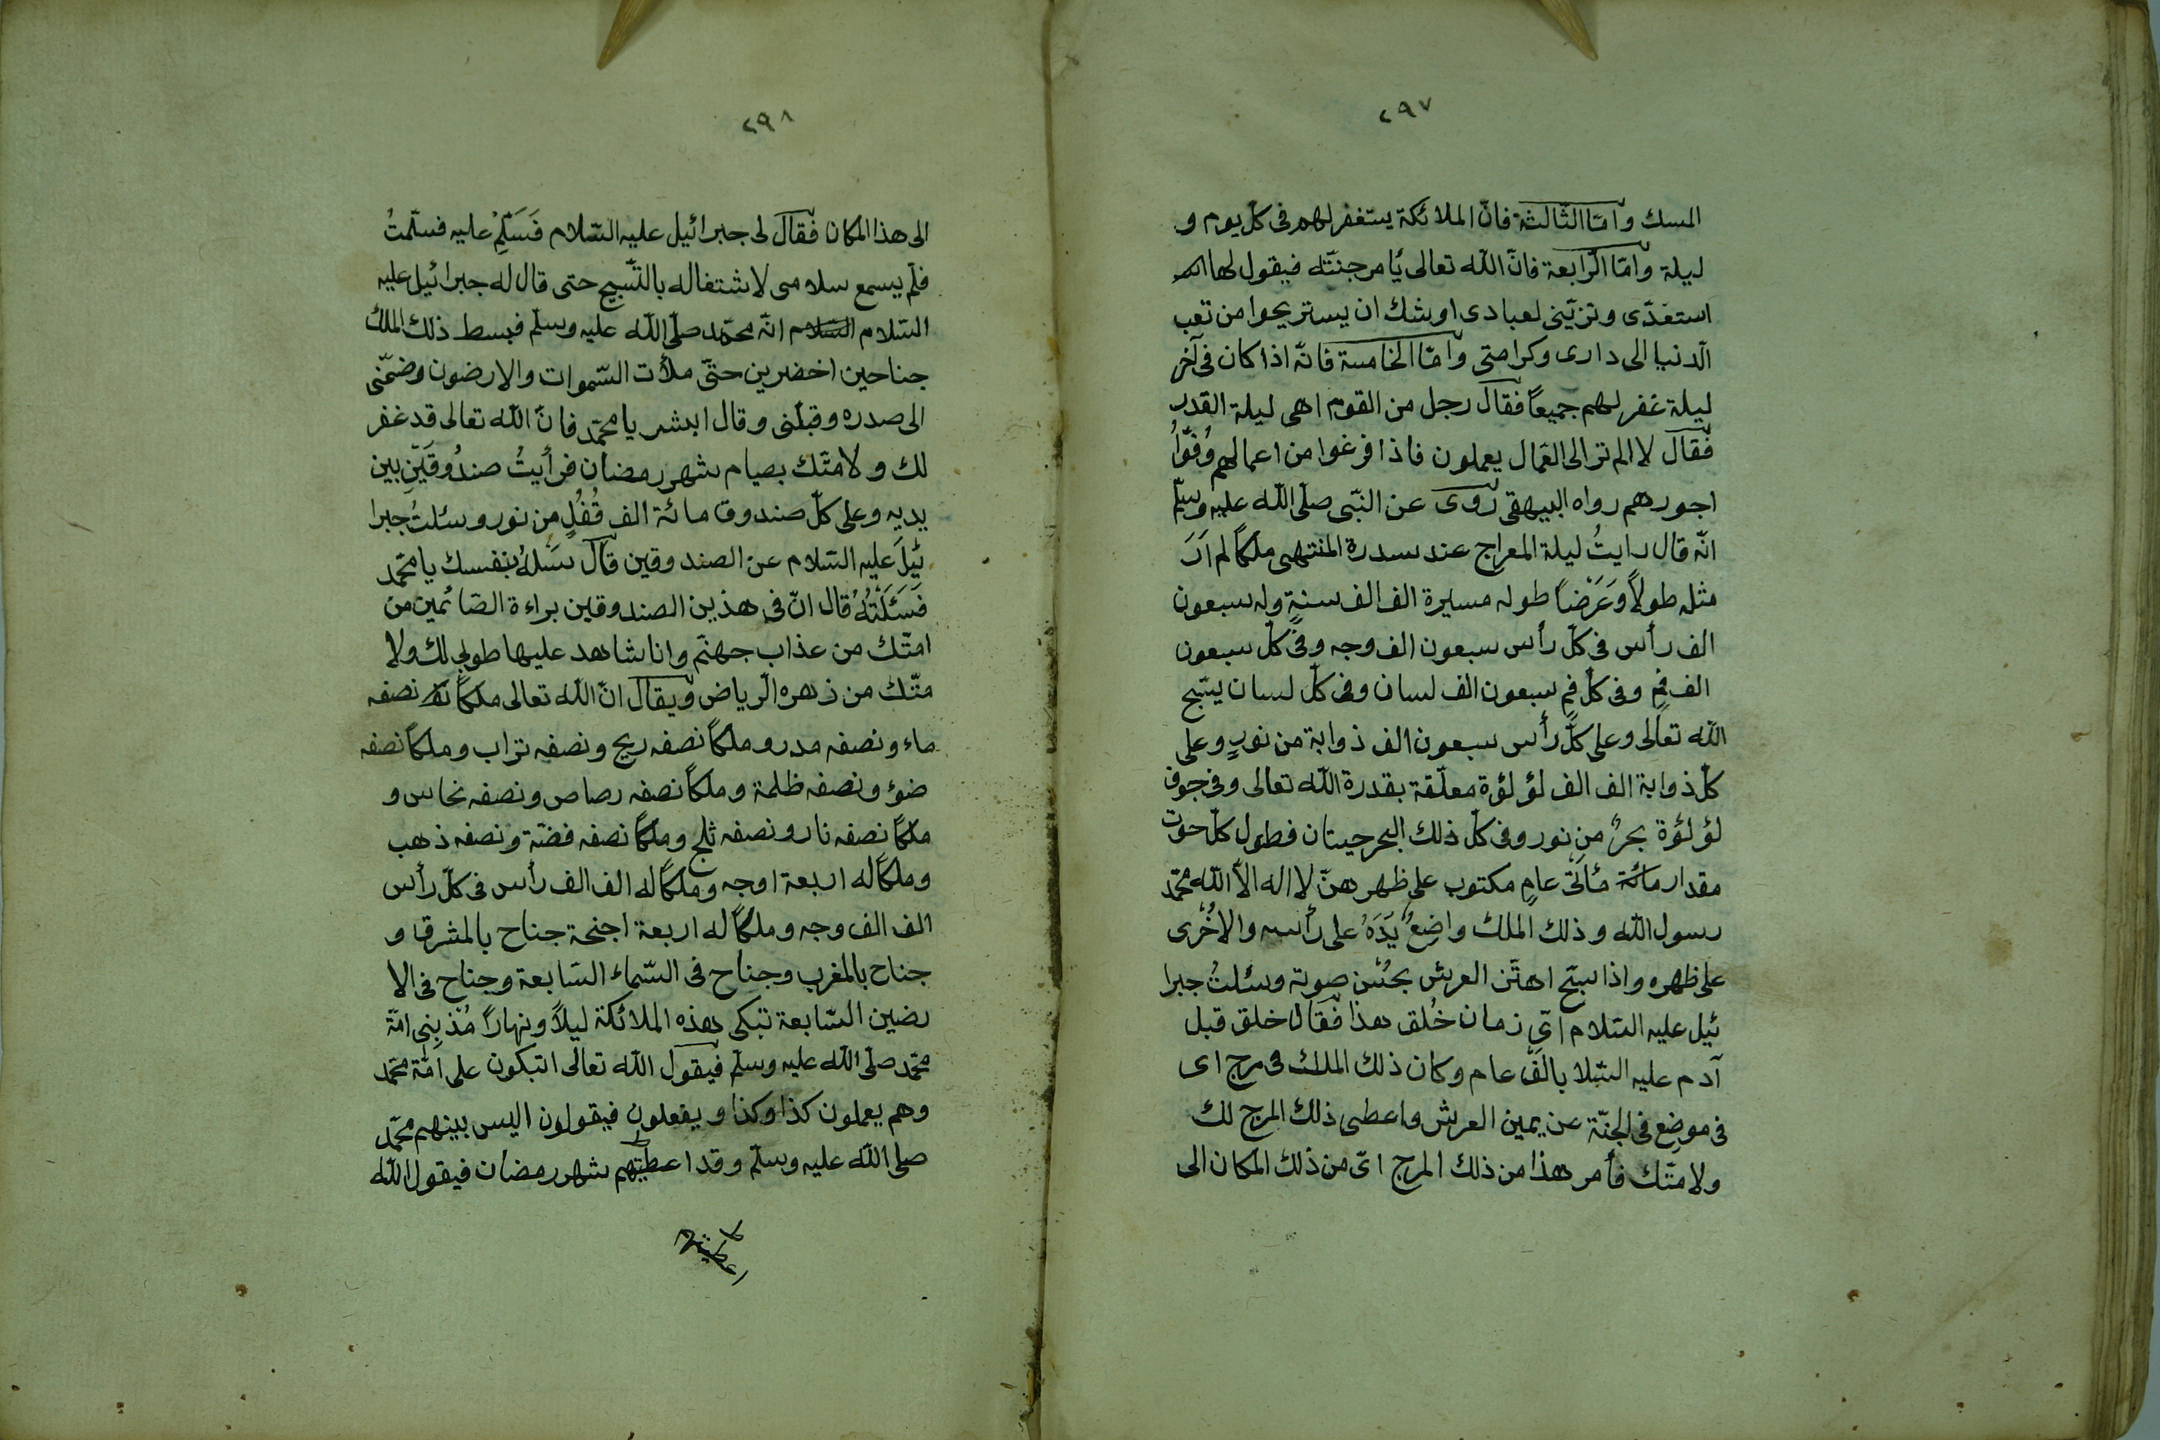 ٢٩٧
المسك وامّا الثّالثة فانّ الملائكة يستغفر لهم فى كلّ يوم و
ليلة وامّا الرّابعة فانّ اللّه تعالى يأمر جنّته فيقول لها
استعدّى وتزيّنى لعبادى اوشك ان يستريحوا من تعب
الّدنيا الى دارى وكرامتى وامّا الخامسة فانّه اذا كان فى آخر
ليلة غفر لهم جميعاً فقال رجل من القوم اهى ليلة القدر
فقال لا الم تر الى العمّال يعملون فاذا فرغوا من اعمالهم وُفّوُا
اجورهم رواه البيهقى روى عن النّبى صلّى اللّه عليه وسلّم
انّه قال رايتُ ليلة المعراج عند سدرة المنتهى ملكاً لم اَرَ
مثله طولاً وَعَرْضاً طوله مسيرة الف الف سنةٍ وله سبعون
الف رأس فى كلّ رأس سبعون الف وجه وفى كلّ سبعون
الف فمٍ وفى كلّ فمٍ سبعون الف لسان وفى كلّ لسان يسبّح
اللّه تعالى وعلى كلّ رأس سبعون الف ذوابة من نورٍ وعلى
كلّ ذوابة الف الف لؤلؤة معلّقة بقدرة اللّه تعالى وفى جوف
لؤلؤة بحرٌ من نور وفى كلّ ذلك البحر حيتان فطول كلّ حوت
مقدار مائة مأتى عامٍ مكتوب على ظهرهنّ لا اله الاّ اللّه محمّد
رسول اللّه وذلك الملك واضِعٌ يَدَهُ على رأسه والاُخْرى
على ظهره واذا سبّح اهتَن العرش بحُسْن صوته وسئلتُ جبرا
ئيل عليه السّلام اىّ زمان خُلق هذا فقال خلق قبل
آدم عليه السّلا بالْفَى عام وكان ذلك الملك فى مرج اى
فى موضِع فى الجنّة عن يمين العرش واعطى ذلك المرج لك
ولامتّك فأمر هذا من ذلك المرج اىّ من ذلك المكان الى
٢٩٨
الى هذا المكان فقال لى جبرائيل عليه السّلام فَسَلِّمْ عليه فسلّمتُ
فلم يسمع سلامى لاشتغاله بالتّسبيح حتى قال له جبرائيل عليه
السّلام السلام انّه محمّد صلّى اللّه عليه وسلّم فبسط ذلك الملك
جناحين اخضرين حتّى ملأت السّموات والارضون وضمّنى
الى صدره وقبلّنى وقال ابشر يا محمّد فانّ اللّه تعالى قد غفر
لك ولامتّك بصيام شهر رمضان فرأيتُ صندُوقَيْنِ بين
يديه وعلى كلّ صندوق مائة الف قُفُلٍ من نور وسئلتُ جبرا
ئيلَ عليه السّلام عن الصندوقين قال سَلْهُ بنفسك يا محمّد
فَسَئَلْتُهُ قال انّ فى هذين الصندوقين براءة الصّائمين من
امتّك من عذاب جهنّم وانا شاهد عليها طوبى لك ولا
متّك من زهره الّرياض ويقال انّ اللّه تعالى ملكاً نصفه
ماء ونصفه مدر وملكاً نصفه ريح ونصفه تراب وملكاً نصفه
ضوء ونصفه ظلمة وملكاً نصفه رصاص ونصفه نحاس و
ملكاً نصفه نار ونصفه ثلج وملكاً نصفه فضّة ونصفه ذهب
وملكاً له اربعة اوجه وملكاً له الف الف رأس فى كلّ رأس
الف الف وجه وملكاً له اربعة اجنحة جناح بالمشرق و
جناح بالمغرب وجناح فى السّماء السّابعة وجناح فى الا
رضين السّابعة تبكى هذه الملائكة ليلاً ونهاراً مُذْنِبِى امّة
محمّد صلّى اللّه عليه وسلّم فيقول اللّه تعالى اتبكون على امّة محمّد
وهم يعملون كذا وكذا ويفعلون فيقولون اليس بينهم محمّد
صلّى اللّه عليه وسلّم وقد اعطيتهم شهر رمضان فيقول اللّه